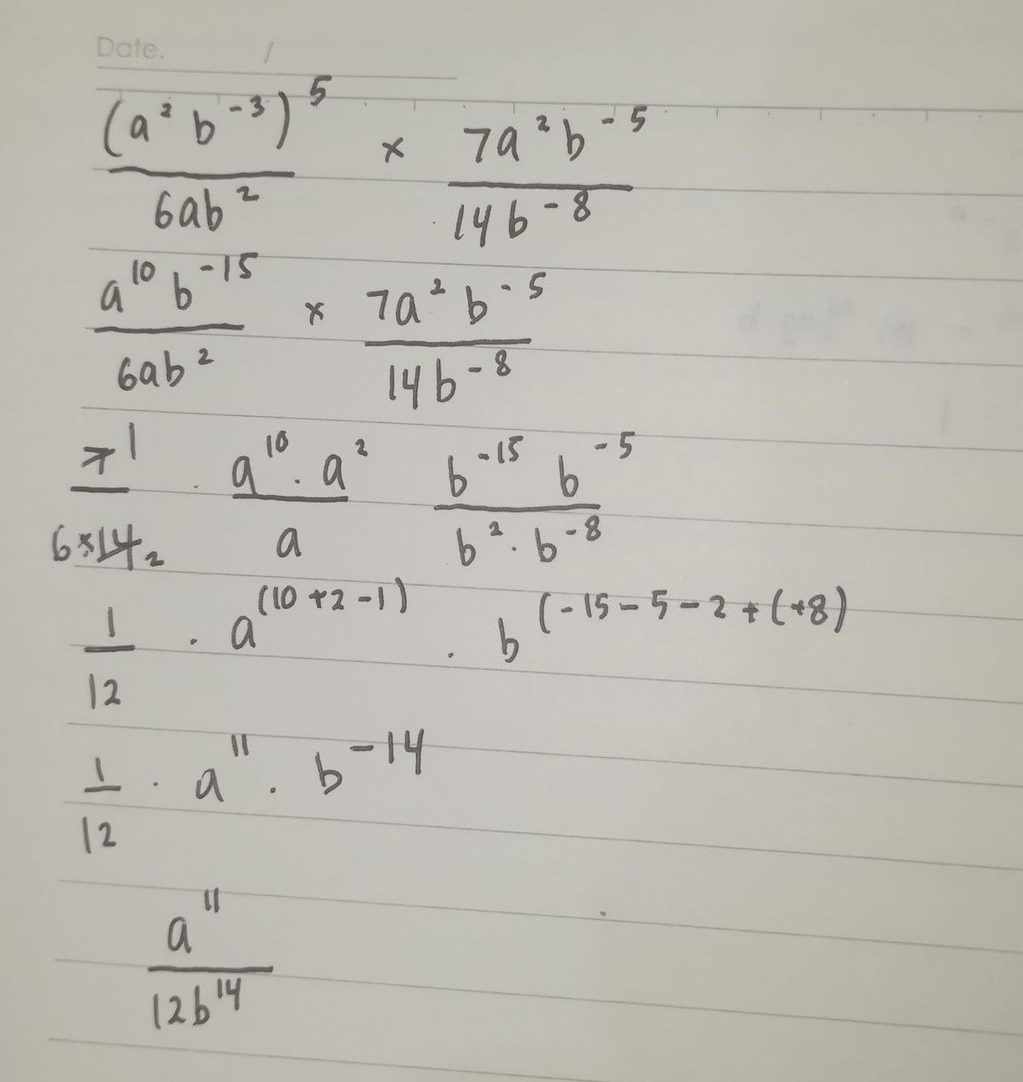 Date. /
(a² b⁻³)⁵ / 6ab² × 7a²b⁻⁵ / 14b⁻⁸
a¹⁰ b⁻¹⁵ / 6ab² × 7a² b⁻⁵ / 14b⁻⁸
7 1 / 6×14 2 . a¹⁰ . a² / a b⁻¹⁵ b⁻⁵ / b² . b⁻⁸
1 / 12 . a^(10+2-1) . b^(-15-5-2+(+8)
1 / 12 . a¹¹ . b⁻¹⁴
a¹¹ / 12b¹⁴